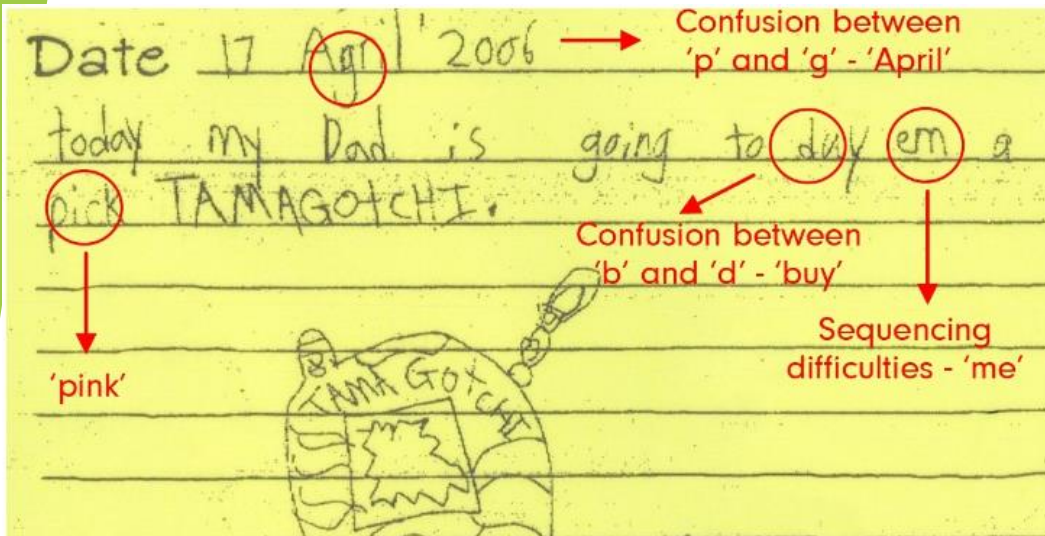 Date 17 Agril 2006
Confusion between
'p' and 'g' - 'April'
today my Dad is going to duy em a
pick TAMAGOtCHI.
Confusion between
'b' and 'd' - 'buy'
Sequencing
difficulties - 'me'
'pink'
TAMAGOtCHI